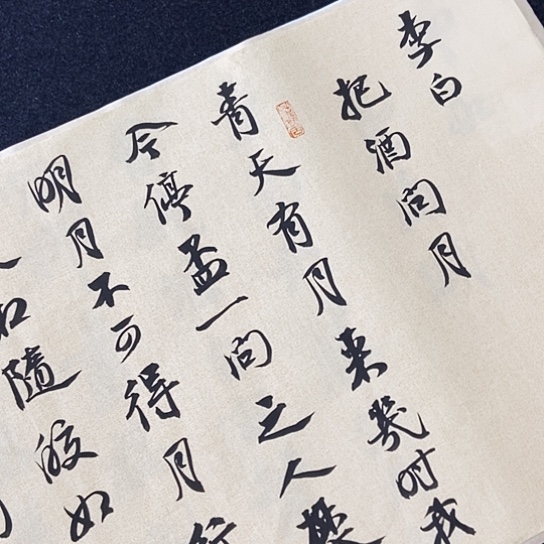 李白
把酒問月
青天有月來幾時我
今停盃一問之人攀
明月不可得月行
人相隨皎如